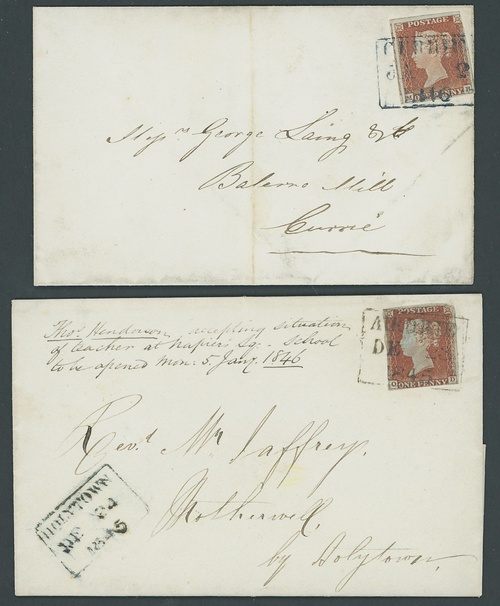 POSTAGE
CURRIE
2
ONE PENNY
Messrs George Laing & Co
Balerno Mill
Currie
POSTAGE
AIRDRIE
DE
ONE PENNY
Thos. Henderson, accepting situation
of teacher at Napier's Sq. School
to be opened Mon: 5 Jany. 1846
Revd. Mr Jaffrey,
Motherwell,
by Holytown,
HOLYTOWN
DE
1845